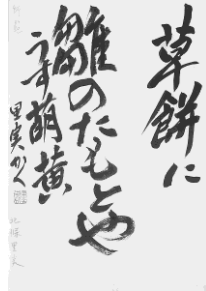 草餅に
雛のたもとや
うす萌黄
里実かく